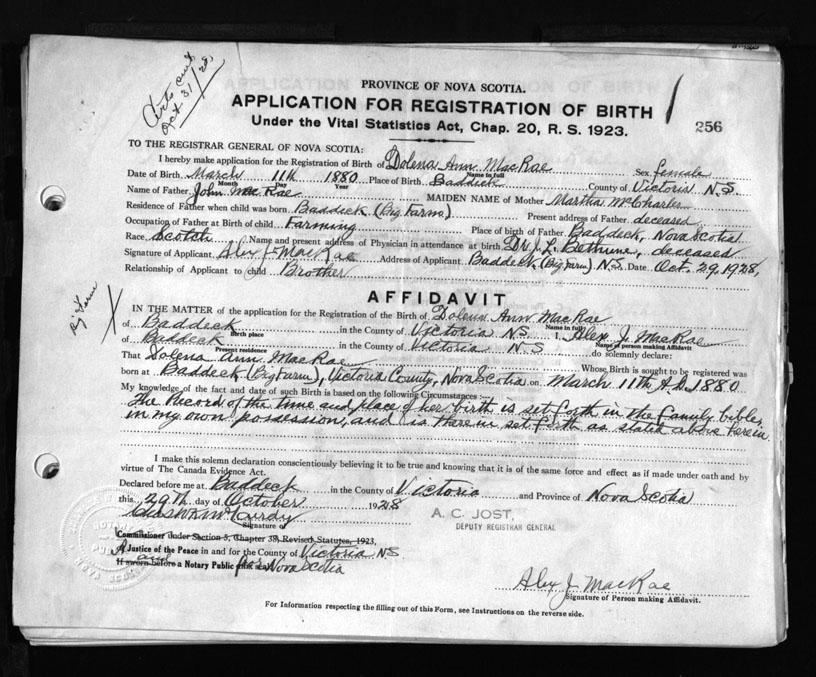 Certs out
Oct 31/28
PROVINCE OF NOVA SCOTIA.
APPLICATION FOR REGISTRATION OF BIRTH
Under the Vital Statistics Act, Chap. 20, R. S. 1923.
256
TO THE REGISTRAR GENERAL OF NOVA SCOTIA:
I hereby make application for the Registration of Birth of Dolena Ann MacRae Sex female
Name in full
Date of Birth March 11th 1880 Place of Birth Baddeck County of Victoria N.S
Month Day Year
Name of Father John MacRae MAIDEN NAME of Mother Martha McCharles
Residence of Father when child was born Baddeck (Big Farm) Present address of Father deceased
Occupation of Father at Birth of child Farming Place of birth of Father Baddeck, Nova Scotia
Race Scotch Name and present address of Physician in attendance at birth Dr. J. L. Bethune, deceased
Signature of Applicant Alex J. MacRae Address of Applicant Baddeck (Big Farm) N.S. Date Oct. 29, 1928,
Relationship of Applicant to child Brother
AFFIDAVIT
IN THE MATTER of the application for the Registration of the Birth of Dolena Ann MacRae
Name in full
of Baddeck in the County of Victoria N.S I, Alex J. MacRae
Birth place Name of person making Affidavit
of Baddeck in the County of Victoria N.S do solemnly declare:
Present residence
That Dolena Ann MacRae Whose Birth is sought to be registered was
born at Baddeck (Big Farm), Victoria County, Nova Scotia on March 11th A.D. 1880
My knowledge of the fact and date of such Birth is based on the following Circumstances:
The Record of the time and place of her birth is set forth in the family bible,
in my own possession, and is therein set forth as stated above herein
I make this solemn declaration conscientiously believing it to be true and knowing that it is of the same force and effect as if made under oath and by
virtue of The Canada Evidence Act.
Declared before me at Baddeck in the County of Victoria and Province of Nova Scotia
this 29th day of October 1928
A. C. JOST,
DEPUTY REGISTRAR GENERAL
Signature of
Commissioner under Section 3, Chapter 38, Revised Statutes, 1923,
A Justice of the Peace in and for the County of Victoria N.S
and
If sworn before a Notary Public for Nova Scotia
Alex J. MacRae
Signature of Person making Affidavit.
For Information respecting the filling out of this Form, see Instructions on the reverse side.